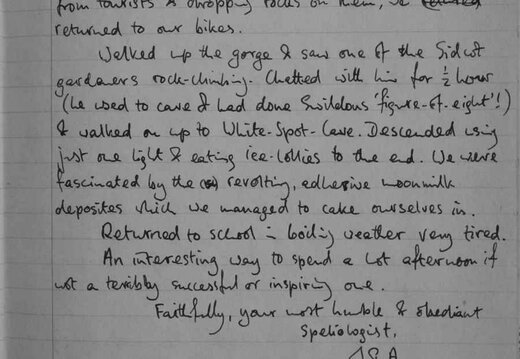 from tourists & dropping rocks on them, we
returned to our bikes.
Walked up the gorge & saw one of the Sidcot
gardeners rock-climbing. Chatted with him for ½ hour
(he used to cave & had done Swildons 'figure-of-eight'!)
& walked on up to White-Spot-Cave. Descended using
just one light & eating ice-lollies to the end. We were
fascinated by the revolting, adhesive moonmilk
deposites which we managed to cake ourselves in.
Returned to school in boiling weather very tired.
An interesting way to spend a hot afternoon if
not a terribly successful or inspiring one.
Faithfully, your most humble & obediant
Speliologist,